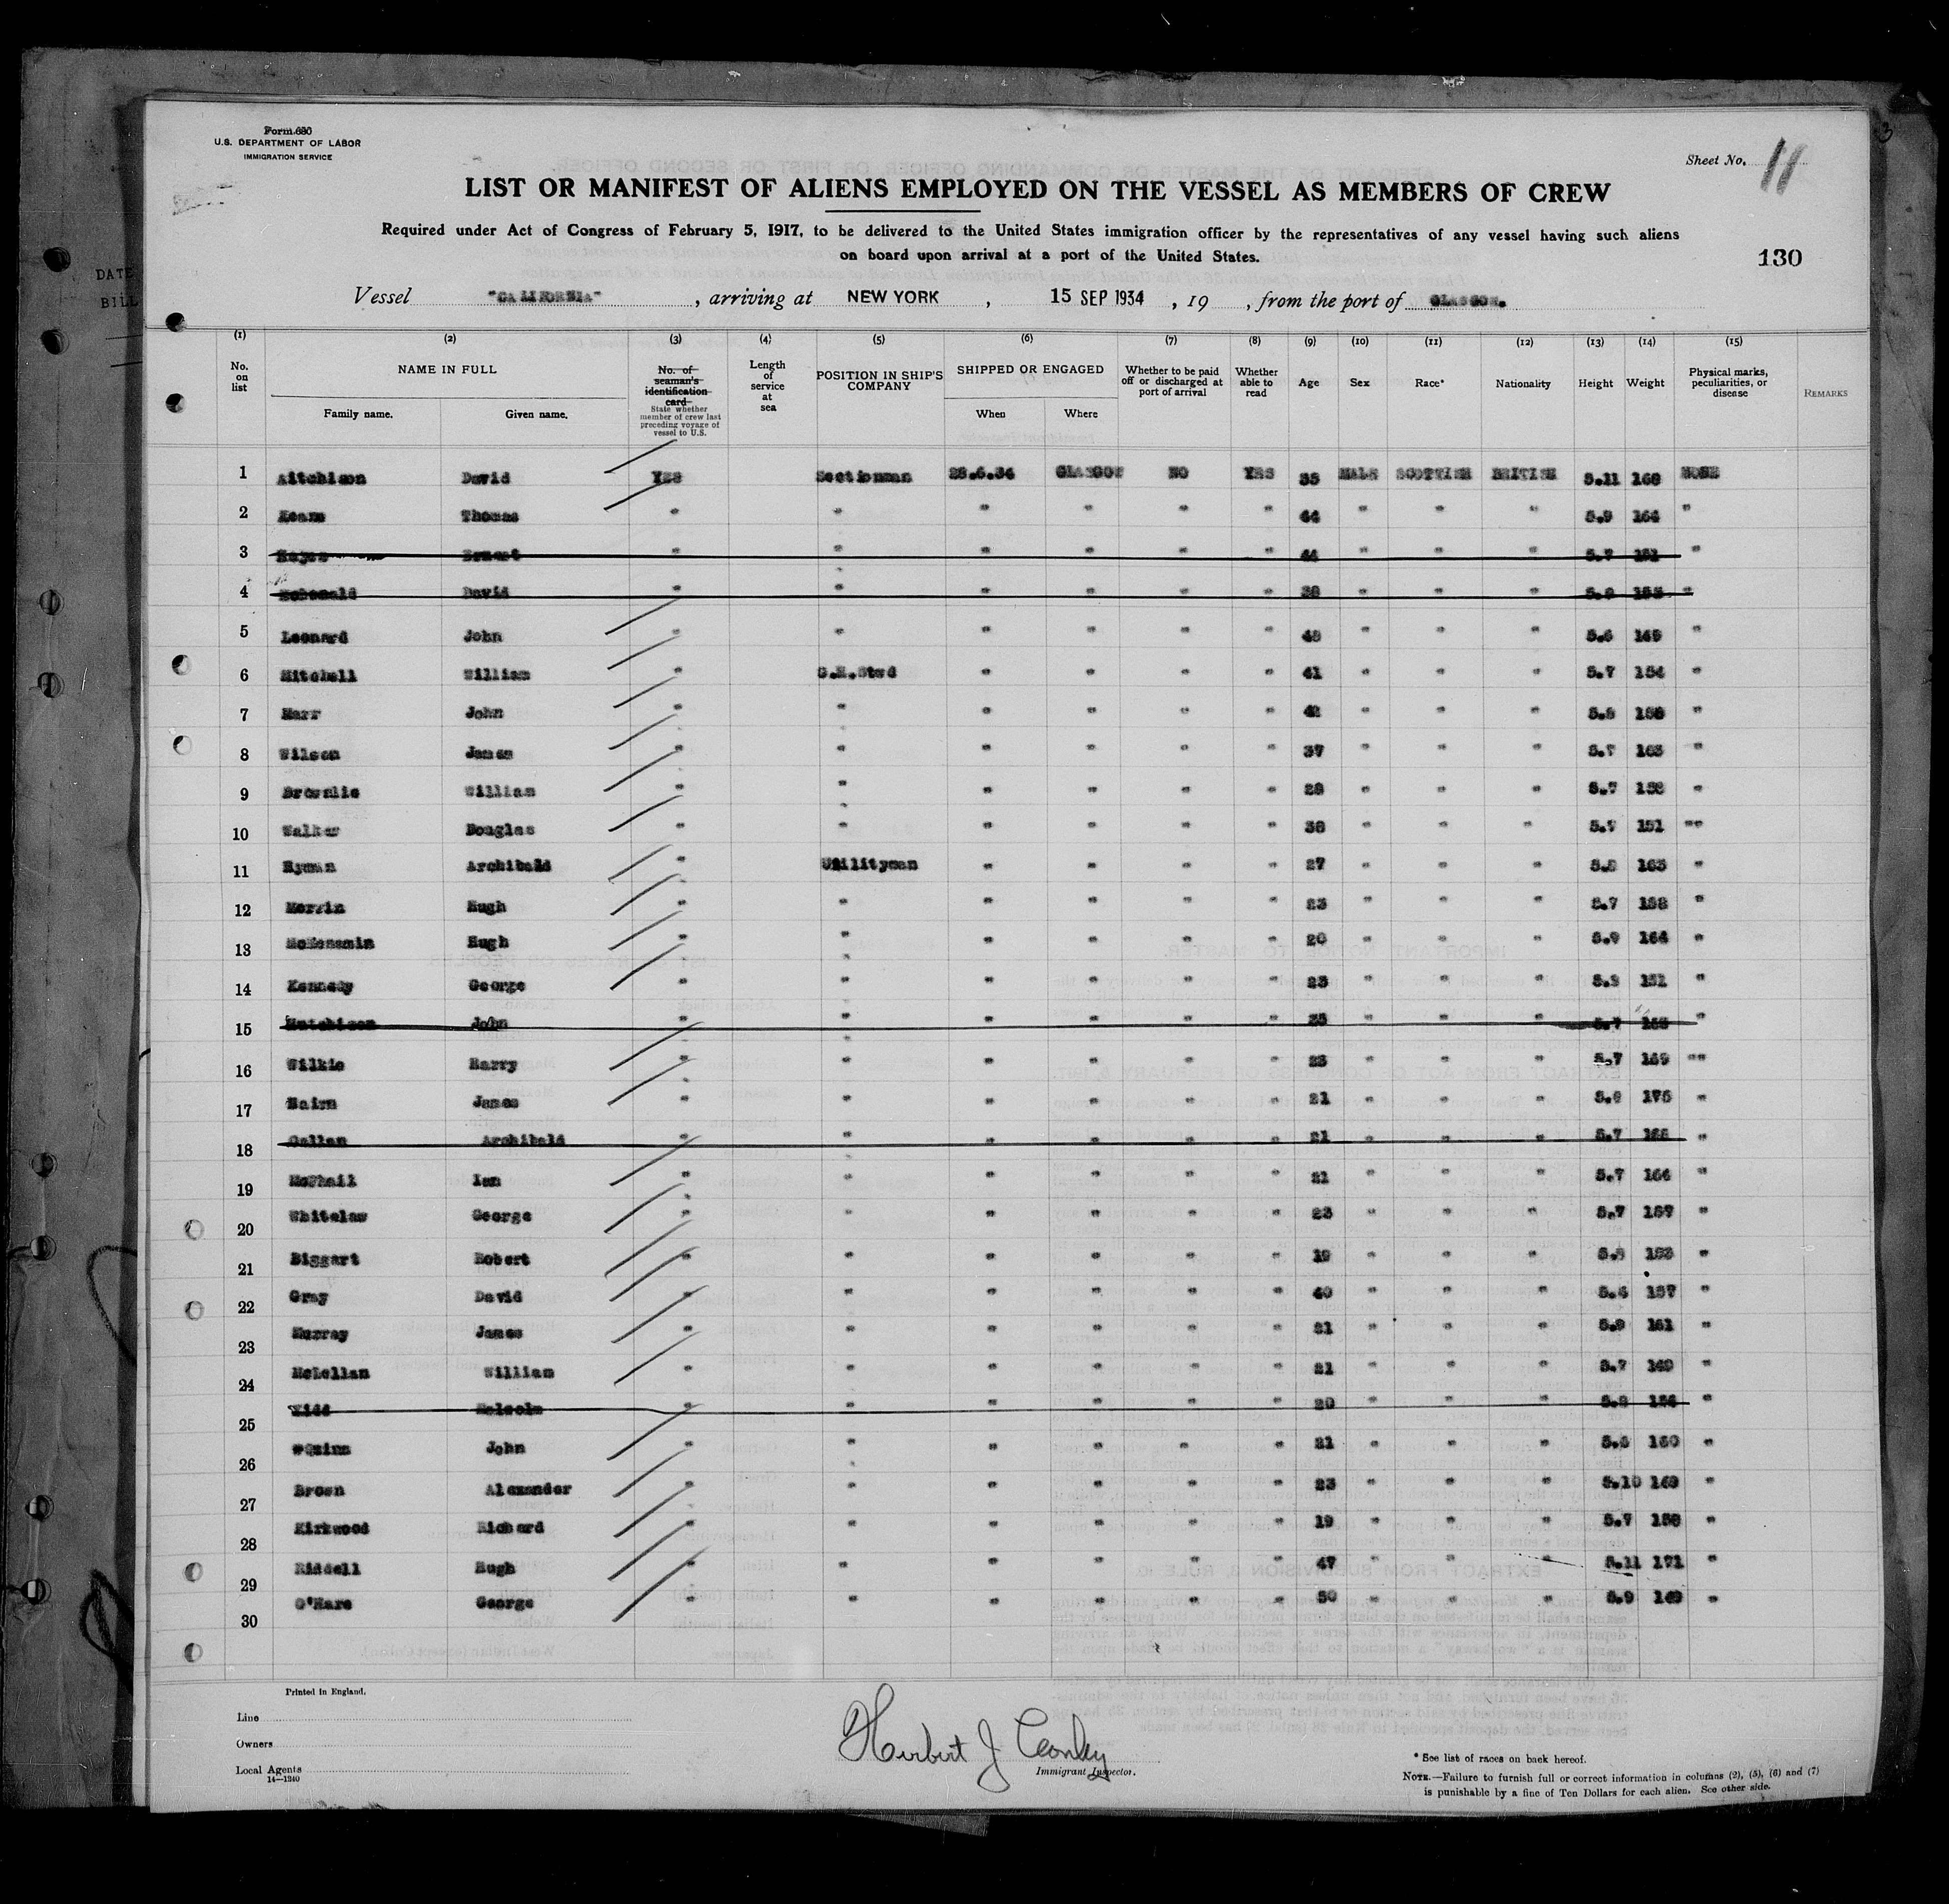 Form 680
U.S. DEPARTMENT OF LABOR
IMMIGRATION SERVICE
Sheet No. 11
LIST OR MANIFEST OF ALIENS EMPLOYED ON THE VESSEL AS MEMBERS OF CREW
Required under Act of Congress of February 5, 1917, to be delivered to the United States immigration officer by the representatives of any vessel having such aliens
on board upon arrival at a port of the United States.
130
DATE
BILL
Vessel "CALIFORNIA", arriving at NEW YORK, 15 SEP 1934, 19 , from the port of GLASGOW.
(1) (2) (3) (4) (5) (6) (7) (8) (9) (10) (11) (12) (13) (14) (15)
No. on list NAME IN FULL Family name. Given name. No. of seaman's identification card State whether member of crew last preceding voyage of vessel to U.S. Length of service at sea POSITION IN SHIP'S COMPANY SHIPPED OR ENGAGED When Where Whether to be paid off or discharged at port of arrival Whether able to read Age Sex Race* Nationality Height Weight Physical marks, peculiarities, or disease REMARKS
1 Aitchison David YES Sectionman 28.6.34 GLASGOW NO YES 35 MALE SCOTTISH BRITISH 5.11 168 NONE
2 Thomas " " " " " " 44 " " " 5.9 164 "
3 Ernest " " " " " " 44 " " " 5.7 151 "
4 McDonald David " " " " " " 38 " " " "
5 Leonard John " " " " " " 48 " " " 5.6 149 "
6 Mitchell William " " " " " 41 " " " 5.7 154 "
7 Marr John " " " " " " " " " 5.8 158 "
8 Wilson James " " " " " " 37 " " " 5.7 163 "
9 Brownlie William " " " " " " 28 " " " 5.7 158 "
10 Walker Douglas " " " " " " 38 " " " 5.7 151 "
11 Hyman Archibald " Utilityman " " " " 27 " " " 5.8 163 "
12 Merrin Hugh " " " " " " 23 " " " 5.7 158 "
13 McMenamin Hugh " " " " " " 20 " " " 5.9 164 "
14 Kennedy George " " " " " " 23 " " " 151 "
15 Hutchison John " " " " " " " " " 5.7 "
16 Wilkie Harry " " " " " " 23 " " " 5.7 159 "
17 Nairn James " " " " " " 21 " " " 175 "
18 Callan Archibald " " " " " " 21 " " " 5.7 "
19 McPhail Ian " " " " " " 21 " " " 5.7 164 "
20 Whitelaw George " " " " " " 23 " " " 5.7 157 "
21 Biggart Robert " " " " " " 19 " " " "
22 Gray David " " " " " " 40 " " " 157 "
23 Murray James " " " " " " 21 " " " 5.9 161 "
24 McLellan William " " " " " " 21 " " " 5.7 149 "
25 Kidd Malcolm " " " " " " 20 " " " "
26 Quinn John " " " " " 21 " " " 150 "
27 Brown Alexander " " " " " " 23 " " " 5.10 149 "
28 Kirkwood Richard " " " " " 19 " " " 5.7 158 "
29 Riddell Hugh " " " " " " 47 " " " 5.11 171 "
30 O'Hare George " " " " " " 50 " " " 5.9 149 "
Printed in England.
Line
Owners
Local Agents
14—1240
Herbert J Conley
Immigrant Inspector.
* See list of races on back hereof.
NOTE.—Failure to furnish full or correct information in columns (2), (5), (6) and (7)
is punishable by a fine of Ten Dollars for each alien. See other side.